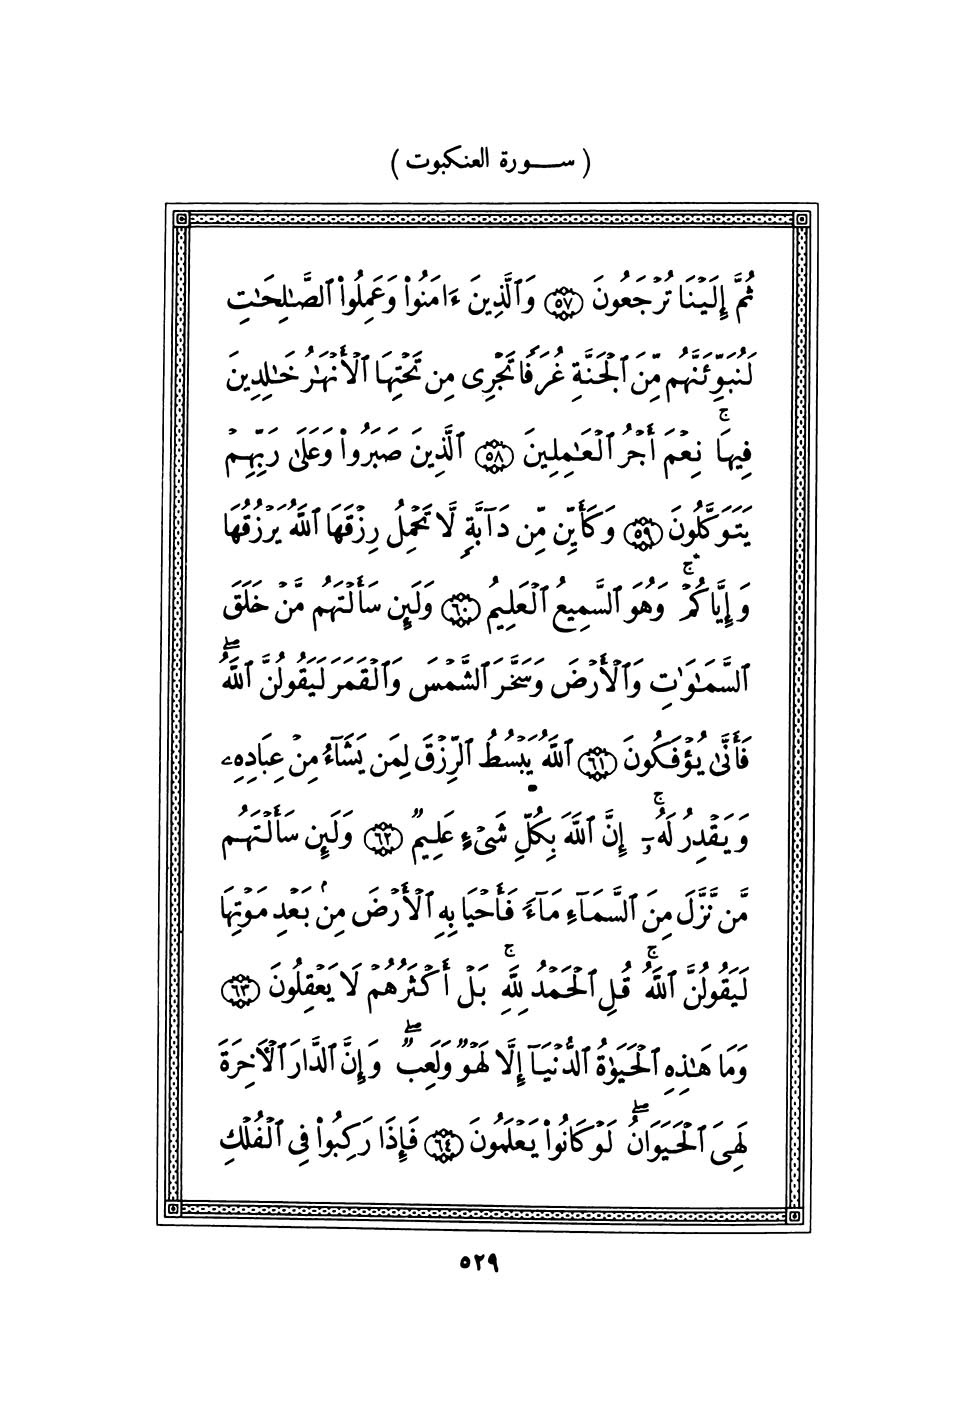 ( سورة العنكبوت )
ثُمَّ إِلَيْنَا تُرْجَعُونَ ٥٧ وَٱلَّذِينَ ءَامَنُوا۟ وَعَمِلُوا۟ ٱلصَّـٰلِحَـٰتِ
لَنُبَوِّئَنَّهُم مِّنَ ٱلْجَنَّةِ غُرَفًا تَجْرِى مِن تَحْتِهَا ٱلْأَنْهَـٰرُ خَـٰلِدِينَ
فِيهَا ۚ نِعْمَ أَجْرُ ٱلْعَـٰمِلِينَ ٥٨ ٱلَّذِينَ صَبَرُوا۟ وَعَلَىٰ رَبِّهِمْ
يَتَوَكَّلُونَ ٥٩ وَكَأَيِّن مِّن دَآبَّةٍ لَّا تَحْمِلُ رِزْقَهَا ٱللَّهُ يَرْزُقُهَا
وَإِيَّاكُمْ ۚ وَهُوَ ٱلسَّمِيعُ ٱلْعَلِيمُ ٦٠ وَلَئِن سَأَلْتَهُم مَّنْ خَلَقَ
ٱلسَّمَـٰوَٰتِ وَٱلْأَرْضَ وَسَخَّرَ ٱلشَّمْسَ وَٱلْقَمَرَ لَيَقُولُنَّ ٱللَّهُ ۖ
فَأَنَّىٰ يُؤْفَكُونَ ٦١ ٱللَّهُ يَبْسُطُ ٱلرِّزْقَ لِمَن يَشَآءُ مِنْ عِبَادِهِۦ
وَيَقْدِرُ لَهُۥٓ ۚ إِنَّ ٱللَّهَ بِكُلِّ شَىْءٍ عَلِيمٌ ٦٢ وَلَئِن سَأَلْتَهُم
مَّن نَّزَّلَ مِنَ ٱلسَّمَآءِ مَآءً فَأَحْيَا بِهِ ٱلْأَرْضَ مِنۢ بَعْدِ مَوْتِهَا
لَيَقُولُنَّ ٱللَّهُ ۚ قُلِ ٱلْحَمْدُ لِلَّهِ ۚ بَلْ أَكْثَرُهُمْ لَا يَعْقِلُونَ ٦٣
وَمَا هَـٰذِهِ ٱلْحَيَوٰةُ ٱلدُّنْيَآ إِلَّا لَهْوٌ وَلَعِبٌ ۖ وَإِنَّ ٱلدَّارَ ٱلْـَٔاخِرَةَ
لَهِىَ ٱلْحَيَوَانُ ۖ لَوْ كَانُوا۟ يَعْلَمُونَ ٦٤ فَإِذَا رَكِبُوا۟ فِى ٱلْفُلْكِ
٥٢٩